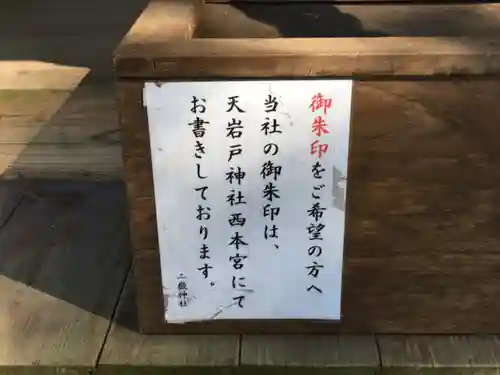 御朱印をご希望の方へ
当社の御朱印は、
天岩戸神社西本宮にて
お書きしております。
二嶽神社